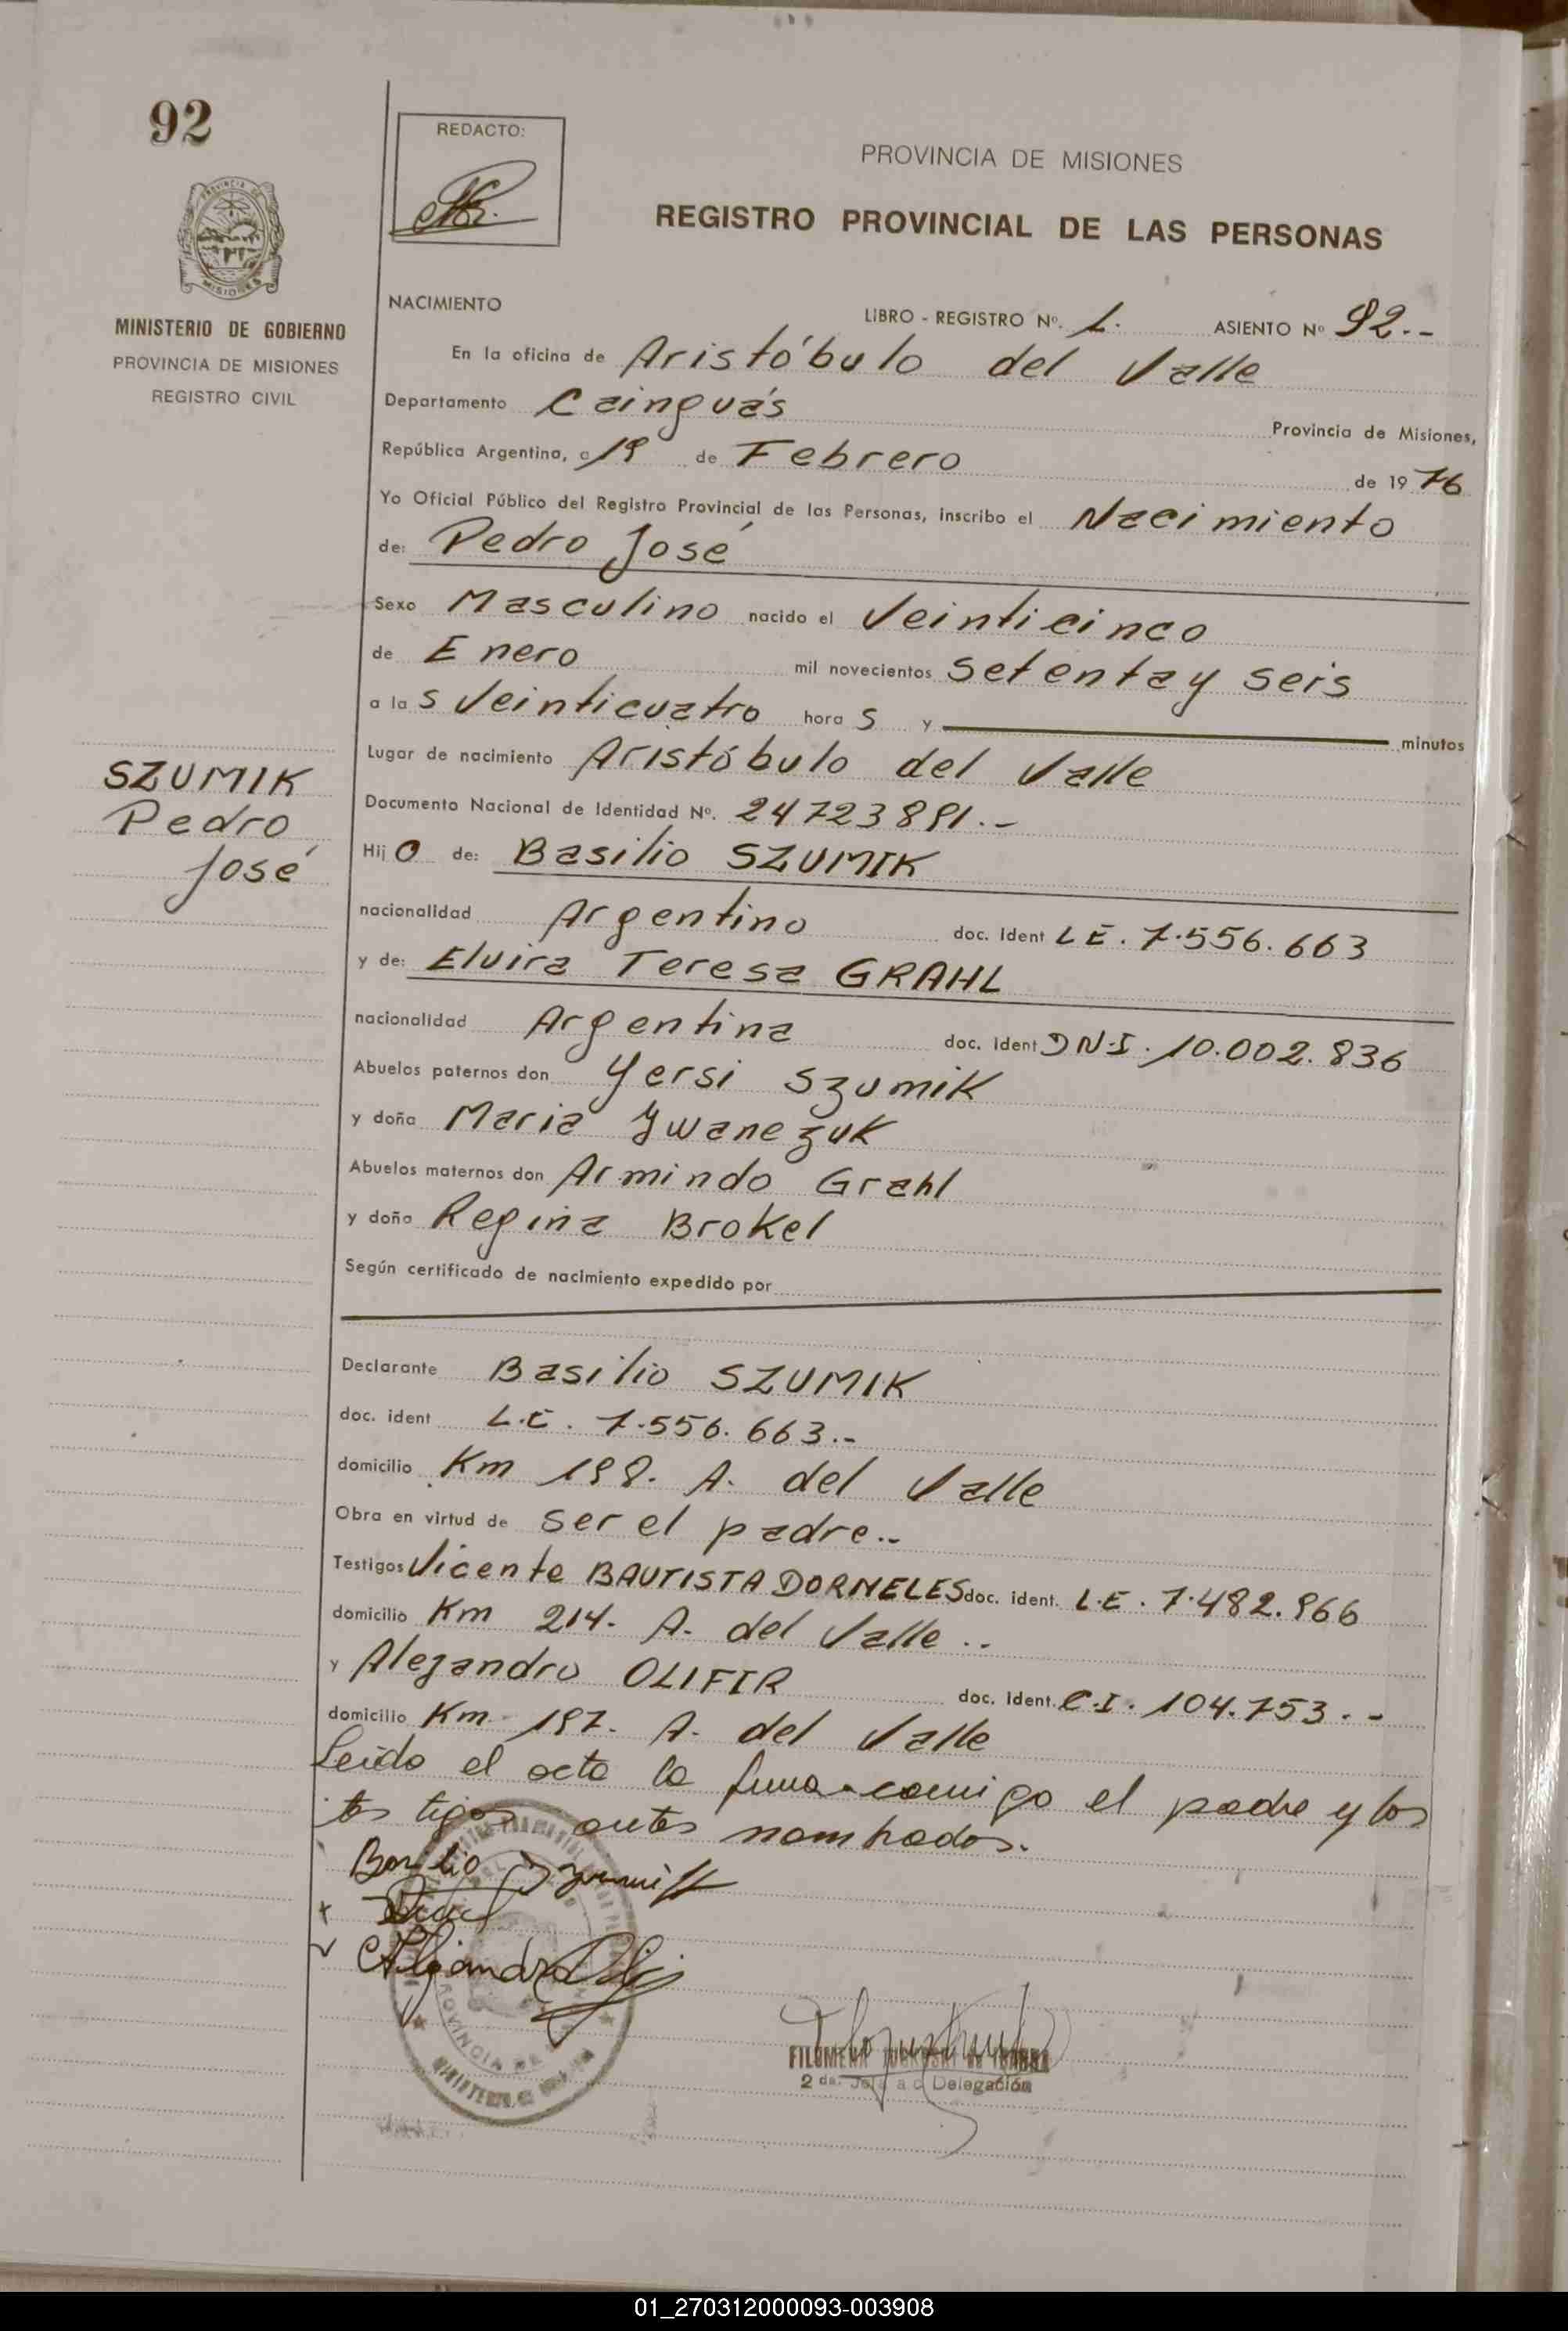 92
REDACTO:
PROVINCIA DE MISIONES
REGISTRO PROVINCIAL DE LAS PERSONAS
MISIONES
MINISTERIO DE GOBIERNO
PROVINCIA DE MISIONES
REGISTRO CIVIL
NACIMIENTO LIBRO - REGISTRO Nº. 1. ASIENTO Nº 92.-
En la oficina de Aristóbulo del Valle
Departamento Cainguás Provincia de Misiones,
República Argentina, a 19 de Febrero de 1976
Yo Oficial Público del Registro Provincial de las Personas, inscribo el Nacimiento
de: Pedro José
Sexo Masculino nacido el Veinticinco
de Enero mil novecientos setenta y seis
a las Veinticuatro horas y minutos
Lugar de nacimiento Aristóbulo del Valle
SZUMIK
Pedro
José
Documento Nacional de Identidad Nº. 24723891.-
Hijo de: Basilio SZUMIK
nacionalidad Argentino doc. ident LE. 7.556.663
y de: Elvira Teresa GRAHL
nacionalidad Argentina doc. ident D N.I. 10.002.836
Abuelos paternos don Yersi Szumik
y doña Maria Ywanezuk
Abuelos maternos don Armindo Grahl
y doña Regina Brokel
Según certificado de nacimiento expedido por
Declarante Basilio SZUMIK
doc. ident L.E. 7.556.663.-
domicilio Km 198. A. del Valle
Obra en virtud de ser el padre.-
Testigos Vicente BAUTISTA DORNELES doc. ident. L.E. 7.482.966
domicilio Km 214. A. del Valle..
y Alejandro OLIFIR doc. ident. C.I. 104.753.-
domicilio Km 197. A. del Valle
Leido el acta la firma comigo el padre y los
testigos antes nombrados.
Basilio Szumik
Alejandro
PROVINCIA DE
FILOMENA
2 da. Jefe a c Delegación
01_270312000093-003908